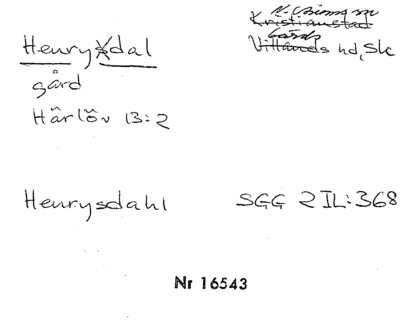 Kristianstad
Villands hd, Sk
Gärds
Henrysdal
gård
Härlöv 13:2
Henrysdahl SGG 2 IL:368
Nr 16543